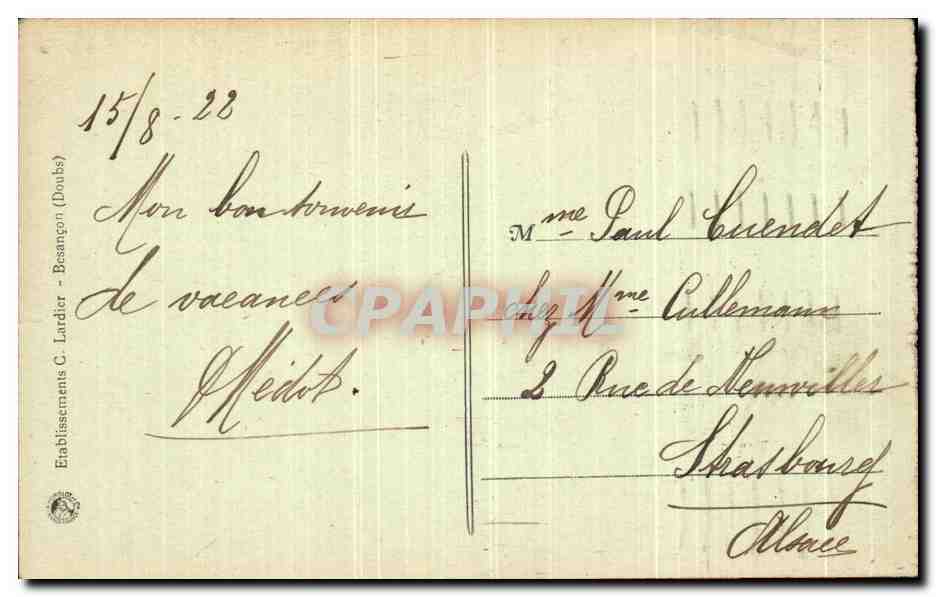 15/8-22
Mon bon souvenir
de vacances
Médot.
Etablissements C. Lardier - Besançon (Doubs)
CPAPHIL
Mme Paul Cuendet
chez Mme Cullemann
2 Rue de Neuwiller
Strasbourg
Alsace